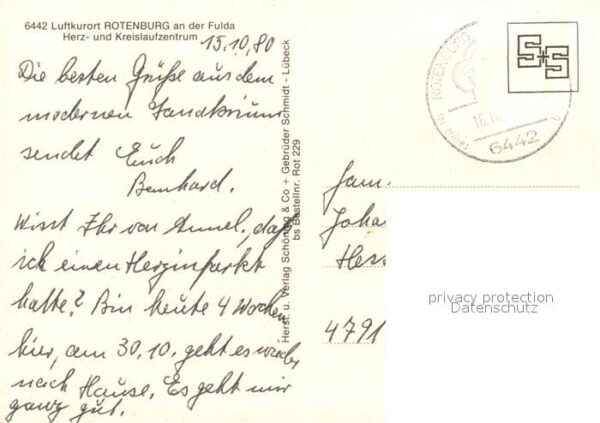 6442 Luftkurort ROTENBURG an der Fulda
Herz- und Kreislaufzentrum
15.10.80
Die besten Grüße aus dem
modernen Sanatorium
sendet Euch
Bernhard.
Wisst Ihr von Annel, daß
ich einen Herzinfarkt
hatte? Bin heute 4 Wochen
hier, am 30.10. geht es wieder
nach Hause. Es geht mir
ganz gut.
Herst. u. Verlag Schöning & Co + Gebrüder Schmidt - Lübeck
bs Bestellnr. Rot 229
S+S
ROTENBURG
6442
Fam.
Joha
Hess
4791
privacy protection
Datenschutz